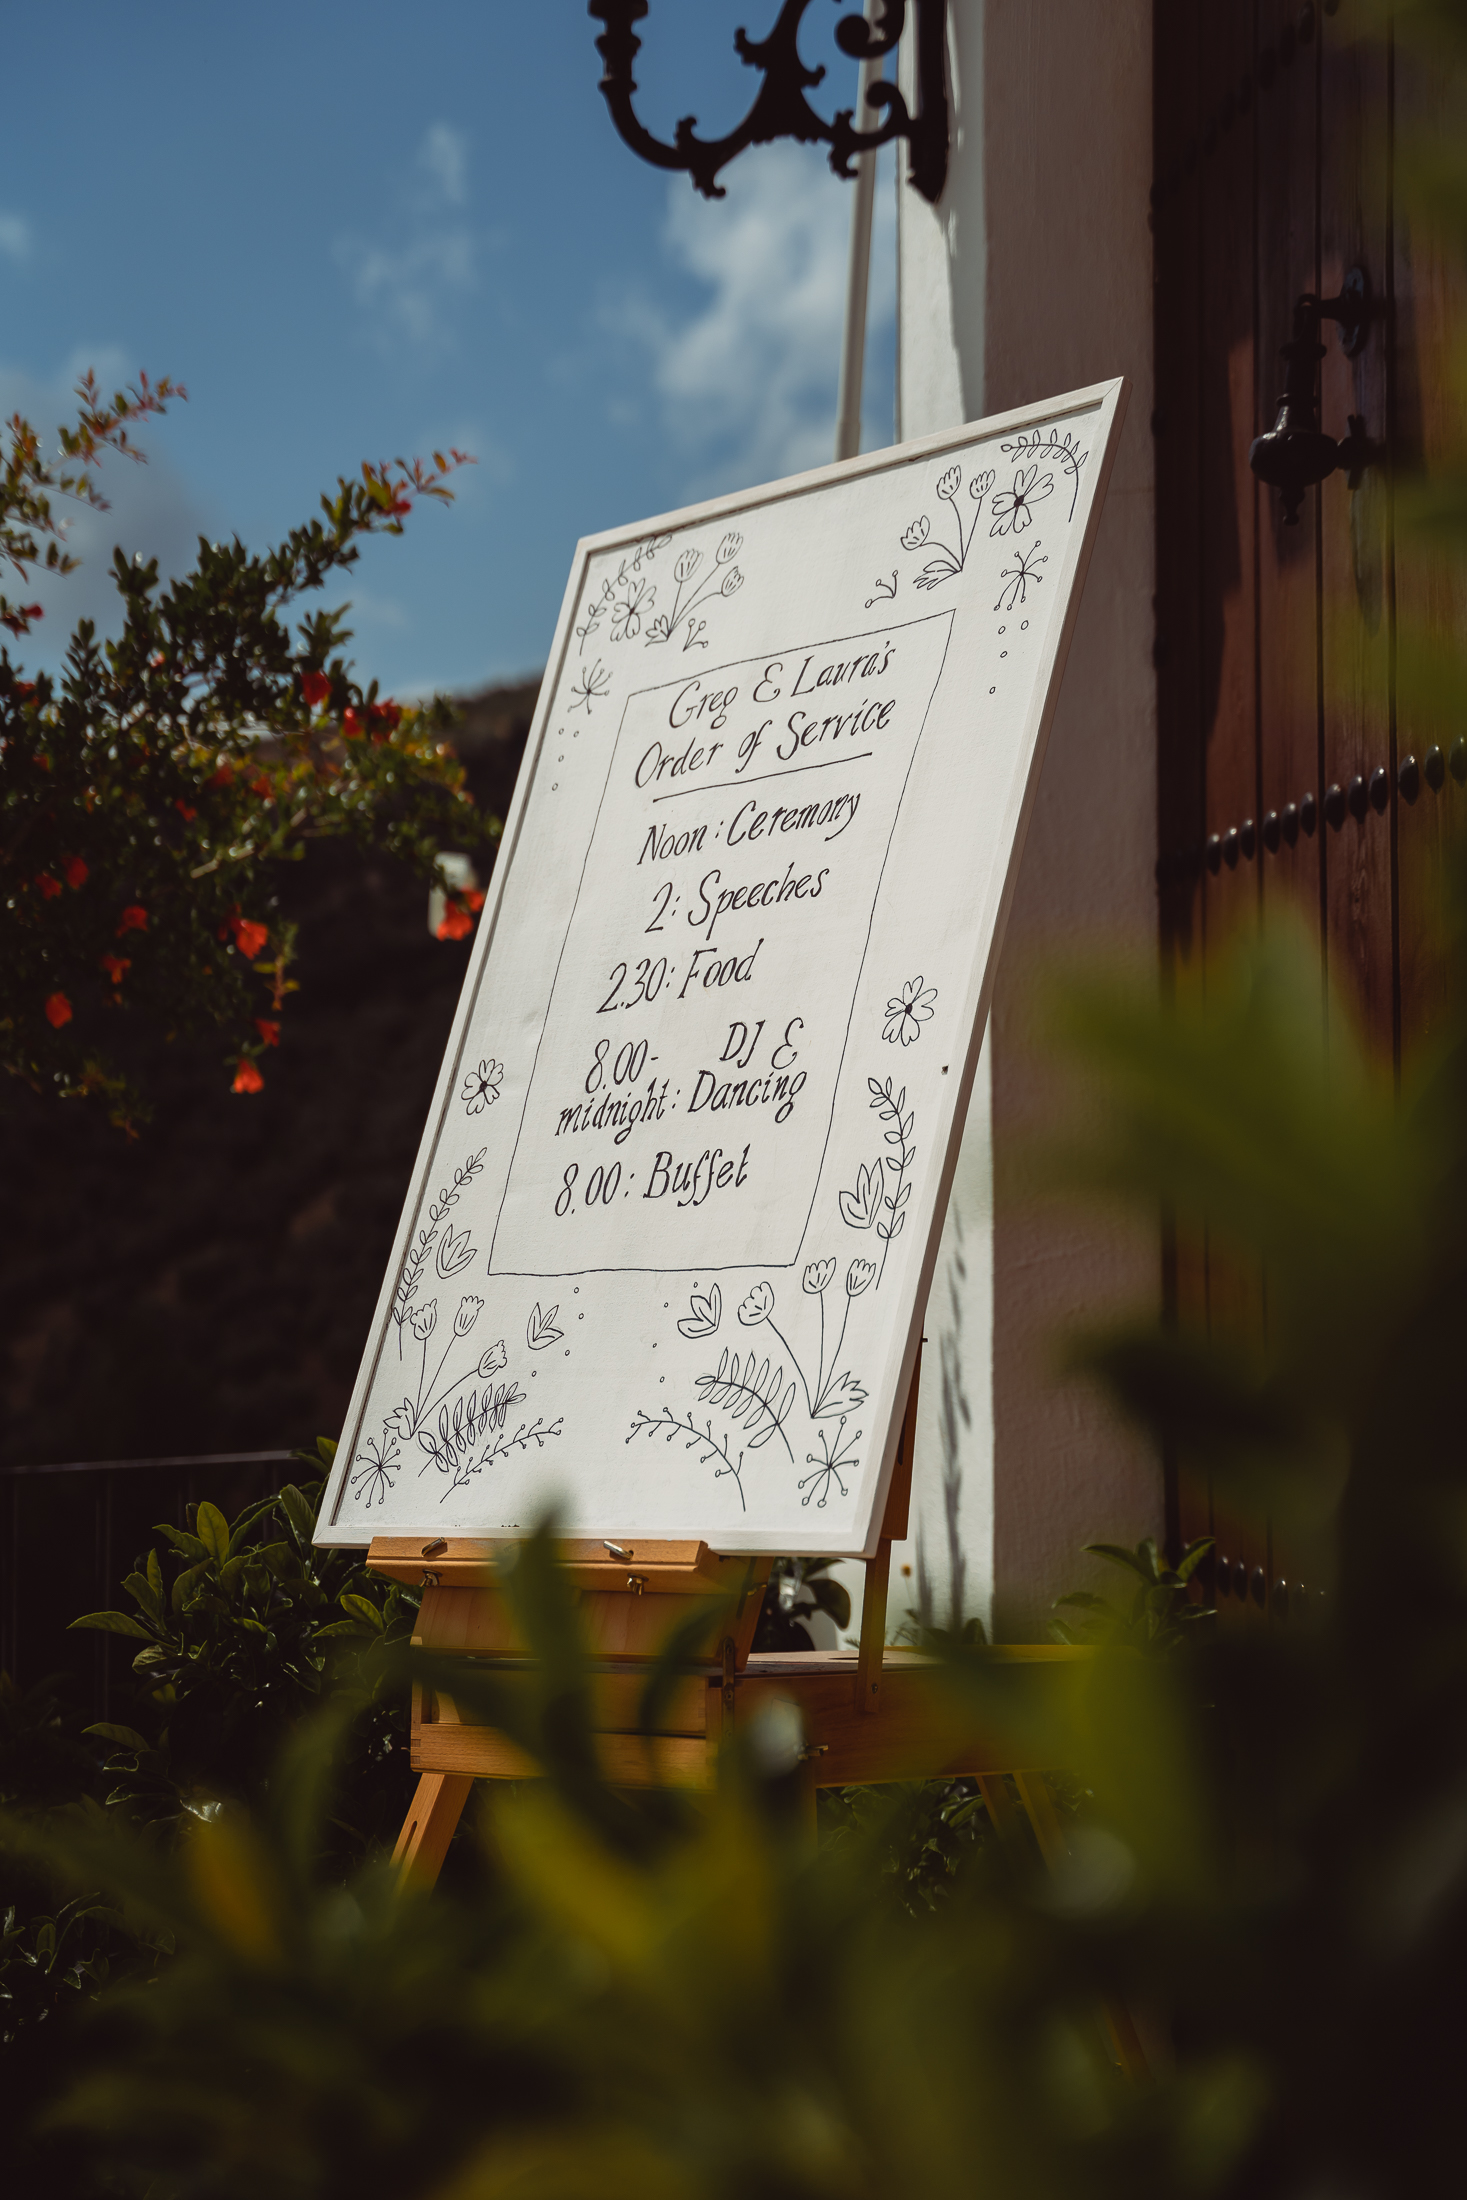 Greg & Laura's
Order of Service
Noon: Ceremony
2: Speeches
2.30: Food
8.00- DJ &
midnight: Dancing
8.00: Buffet